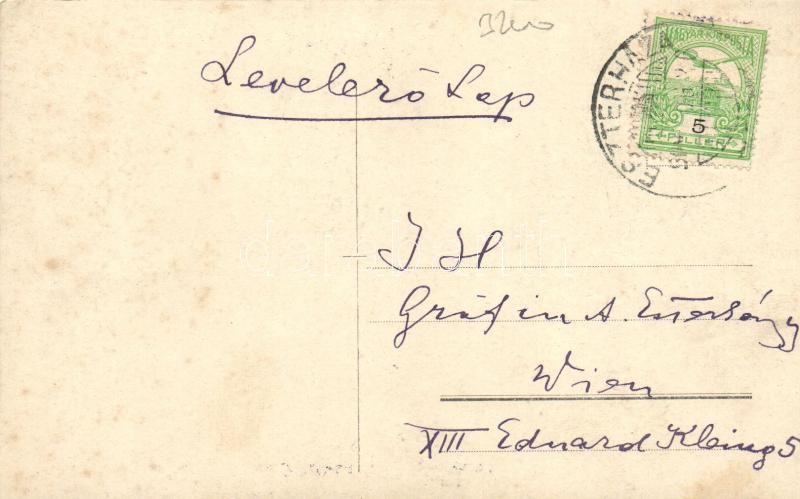 Levelező Lap
MAGYAR KIR. POSTA
5
FILLER
ESZTERHÁZA
I H
Gräfin A. Esterházy
Wien
XIII Eduard Kleing 5